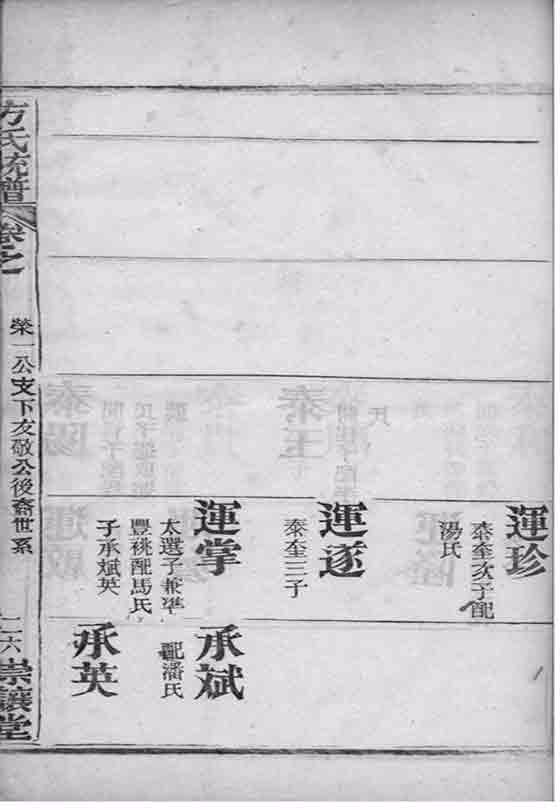 運珍
泰奎次子配
湯氏
運遂
泰奎三子
運掌
太選子兼準
豐祧配馬氏
子承斌英
承斌
配潘氏
承英
方氏統譜
卷之
榮一公支下友敬公後裔世系
二六
崇讓堂